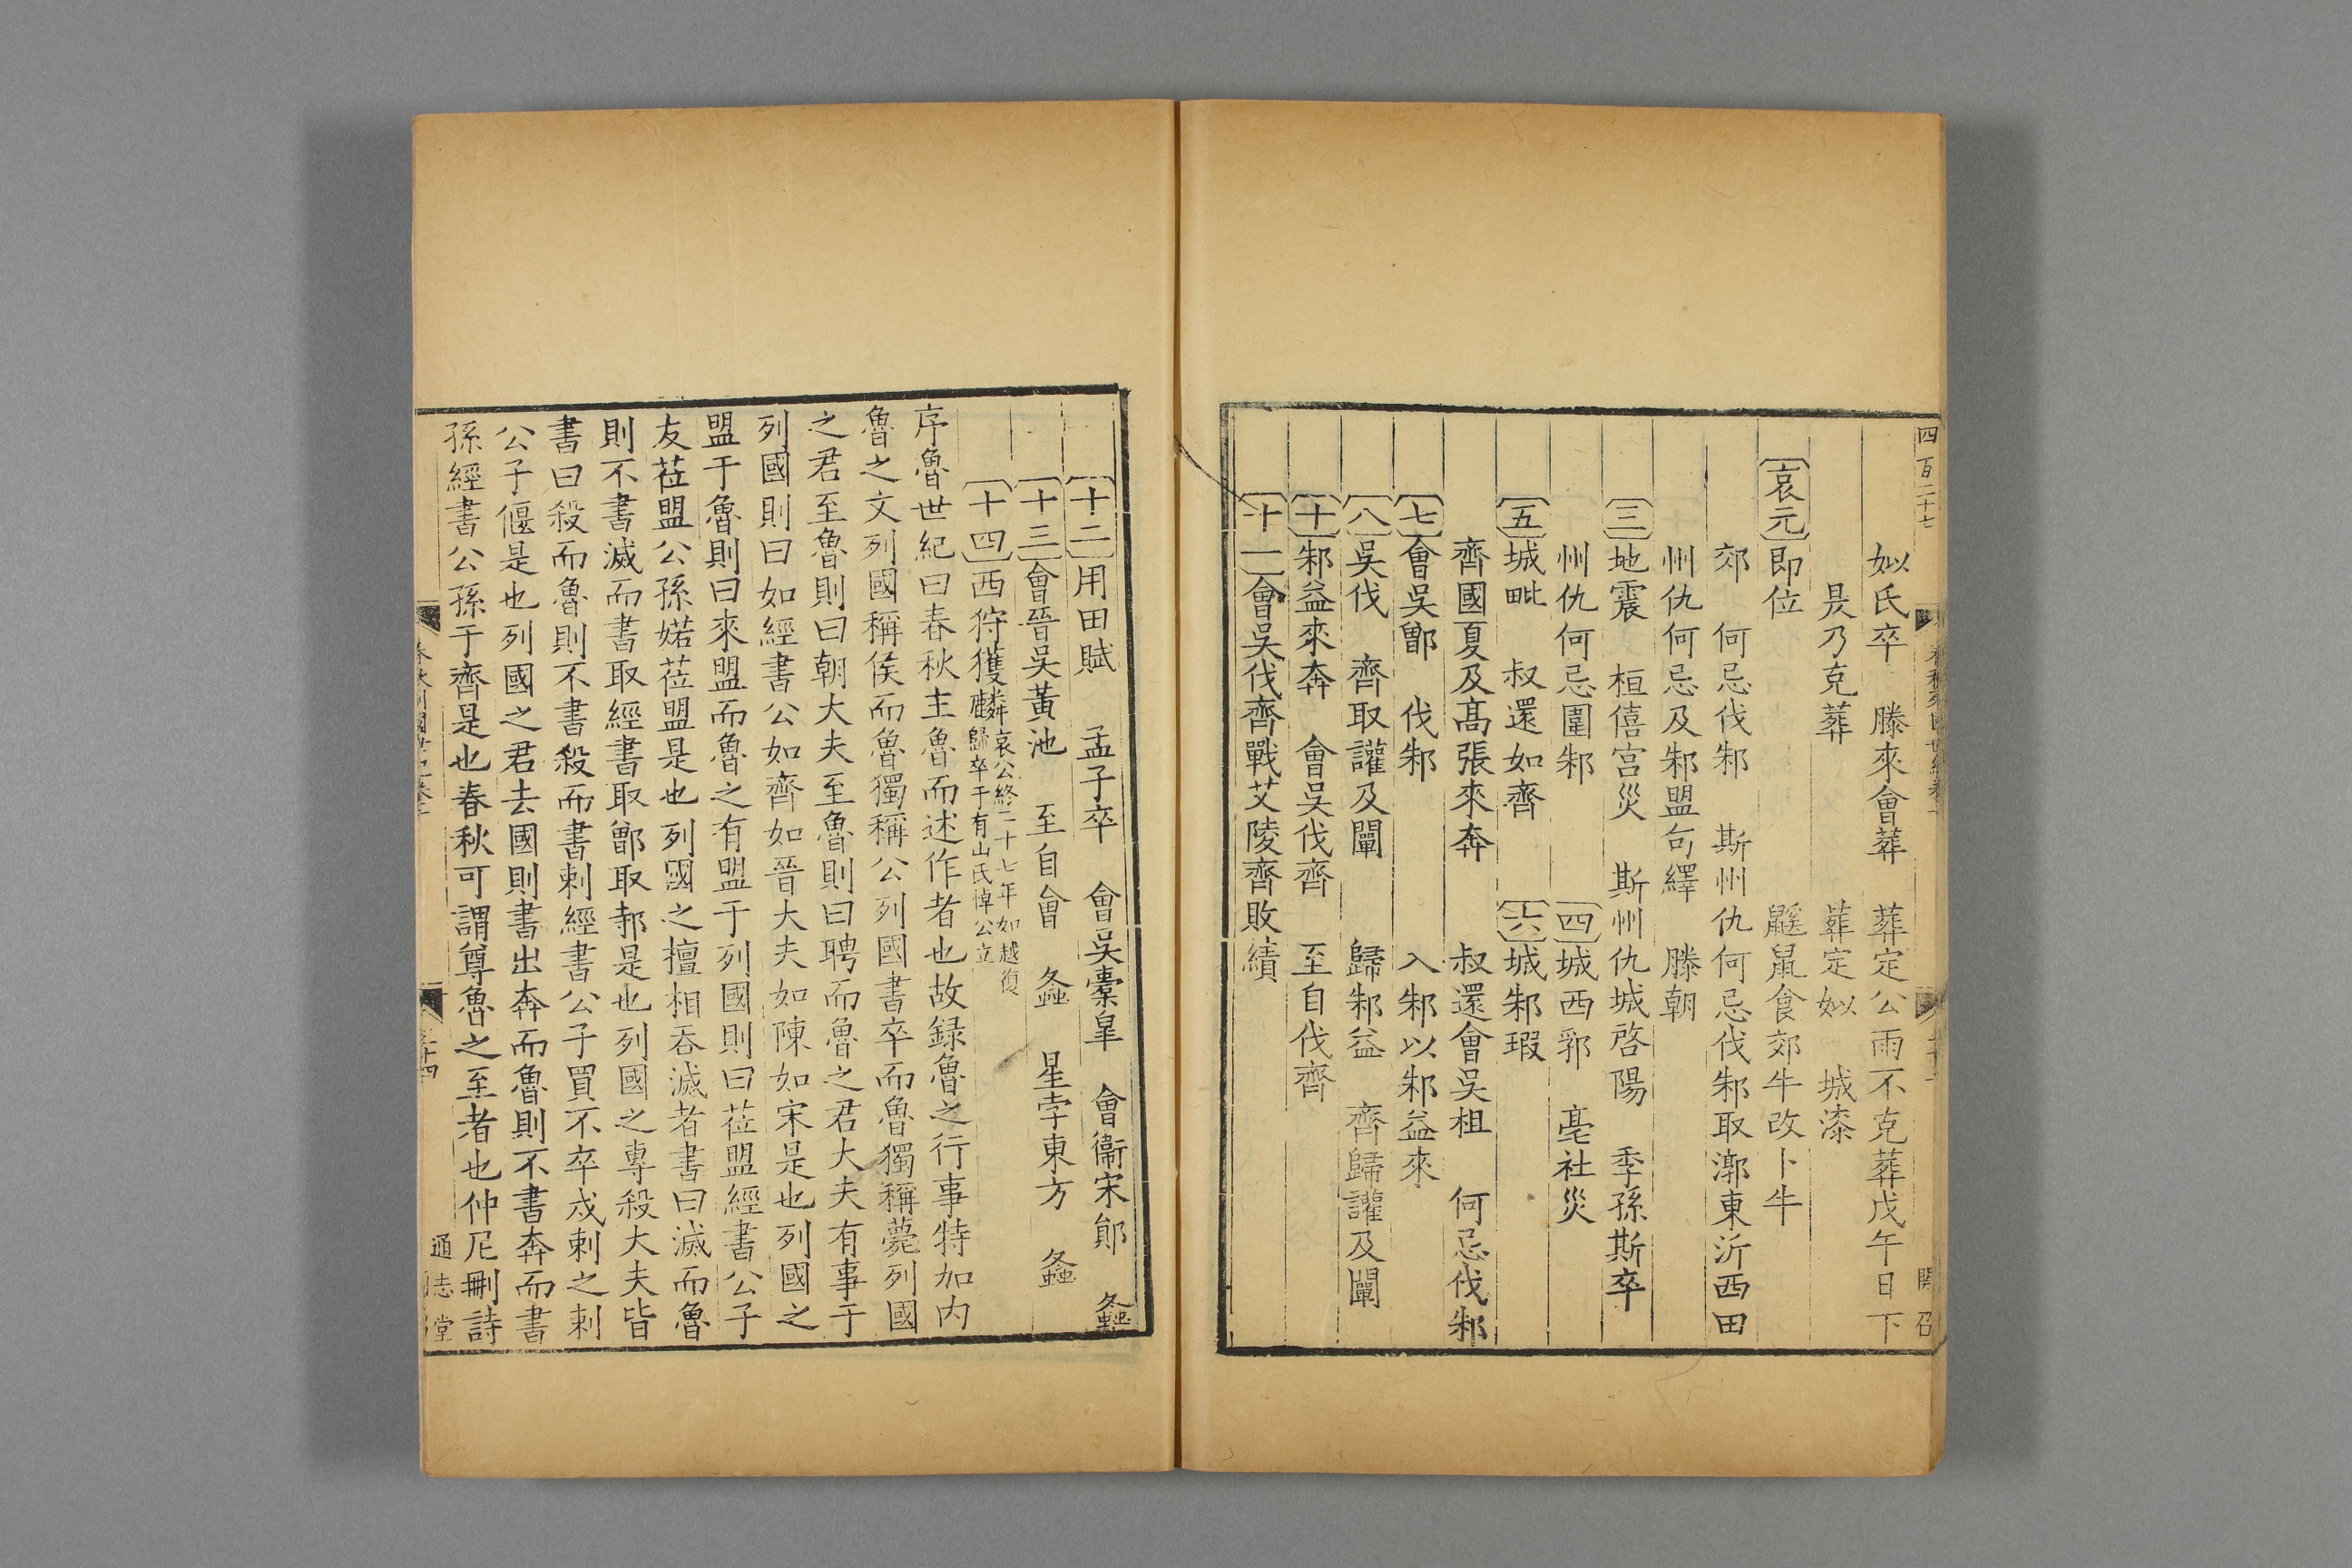 四百二十七
姒氏卒　滕來會葬　葬定公雨不克葬戊午日下
昃乃克葬　葬定姒　城漆
哀元即位　鼷鼠食郊牛改卜牛
郊　何忌伐邾　斯州仇何忌伐邾取漷東沂西田
州仇何忌及邾盟句繹　滕朝
三地震　桓僖宮災　斯州仇城啓陽　季孫斯卒
州仇何忌圍邾　四城西郛　亳社災
五城毗　叔還如齊　六城邾瑕
齊國夏及髙張來奔　叔還會吳柤　何忌伐邾
七會吳鄫　伐邾　入邾以邾益來
八吳伐　齊取讙及闡　歸邾益　齊歸讙及闡
十邾益來奔　會吳伐齊　至自伐齊
十一會吳伐齊戰艾陵齊敗績
十二用田賦　孟子卒　會吳橐皐　會衞宋鄖　螽
十三會晉吳黃池　至自會　螽　星孛東方　螽
十四西狩獲麟哀公終二十七年如越復
歸卒于有山氏悼公立
序魯世紀曰春秋主魯而述作者也故録魯之行事特加内
魯之文列國稱侯而魯獨稱公列國書卒而魯獨稱薨列國
之君至魯則曰朝大夫至魯則曰聘而魯之君大夫有事于
列國則曰如經書公如齊如晉大夫如陳如宋是也列國之
盟于魯則曰來盟而魯之有盟于列國則曰莅盟經書公子
友莅盟公孫婼莅盟是也列國之擅相吞滅者書曰滅而魯
則不書滅而書取經書取鄫取邿是也列國之專殺大夫皆
書曰殺而魯則不書殺而書刺經書公子買不卒戍刺之刺
公子偃是也列國之君去國則書出奔而魯則不書奔而書
孫經書公孫于齊是也春秋可謂尊魯之至者也仲尼刪詩
通志堂